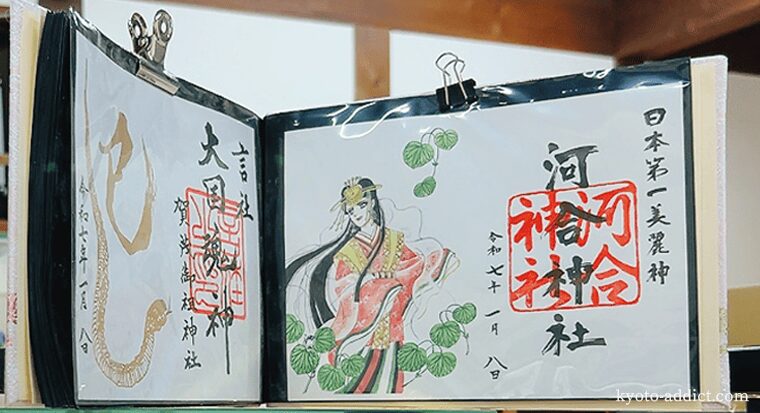 日本第一美麗神
河合神社
河合神社
令和七年一月 八日
言社
大国魂神
賀茂御祖神社
巳
令和七年一月 八日
kyoto-addict.com